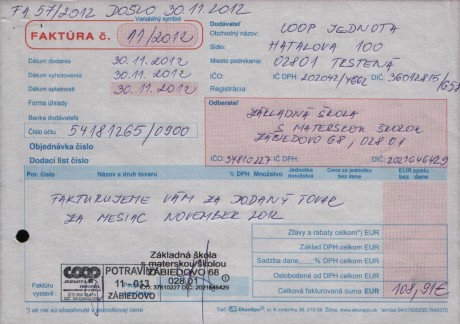 FA 57/2012 DOŠLO 30.11.2012
Variabilný symbol
FAKTÚRA č. 11/2012
Dátum dodania 30.11.2012
Dátum vyhotovenia 30.11.2012
Dátum splatnosti 30.11.2012
Forma úhrady
Banka dodávateľa
Číslo účtu 54181265/0900
Objednávka číslo
Dodací list číslo
Dodávateľ
Obchodný názov: COOP JEDNOTA
Sídlo: HATALOVA 100
Miesto podnikania: 02801 TRSTENÁ
IČ DPH: DIČ:
Registrácia:
Odberateľ
ZÁKLADNÁ ŠKOLA
S MATERSKOU ŠKOLOU
ZÁBIEDOVO 68, 02801
IČO: 37810227 IČ DPH: DIČ: 2021646429
Por. číslo Názov a druh tovaru % DPH Množstvo Jednotka množstva Cena za jednotku bez dane EUR spolu bez dane
FAKTURUJEME VÁM ZA DODANÝ TOVAR
ZA MESIAC NOVEMBER 2012
Zľavy a rabaty celkom*) EUR
Základ DPH celkom EUR
Sadzba dane % DPH celkom EUR
Oslobodené od DPH celkom EUR
Celková fakturovaná suma EUR 108,91€
Faktúru vystavil
COOP JEDNOTA
POTRAVINY
11-013
ZÁBIEDOVO
Základná škola
s materskou školou
ZÁBIEDOVO 68
028 01
IČO: 37810227 DIČ: 2021646429